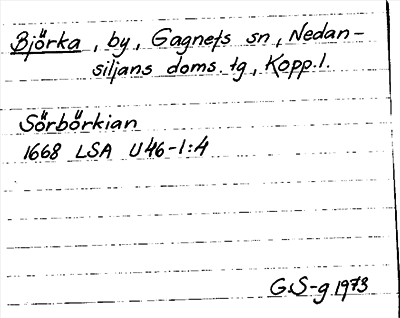 Björka, by, Gagnefs sn, Nedan-
siljans doms. tg, Kopp. l.
Sörbörkian
1668 LSA U46-1:4
G.S-g 1973